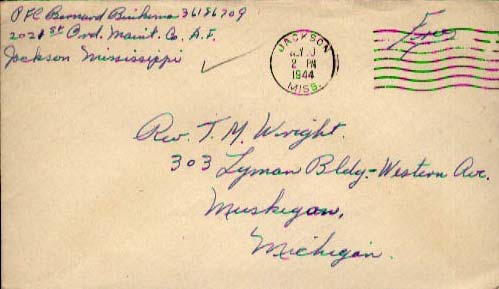 PFC Bernard 36186709
2021st Ord. Maint. Co. A.F.
Jackson Mississippi
JACKSON
2 PM
1944
MISS.
Free
Rev. T. M. Wright.
303 Lyman Bldg.-Western Ave.
Muskegon,
Michigan.